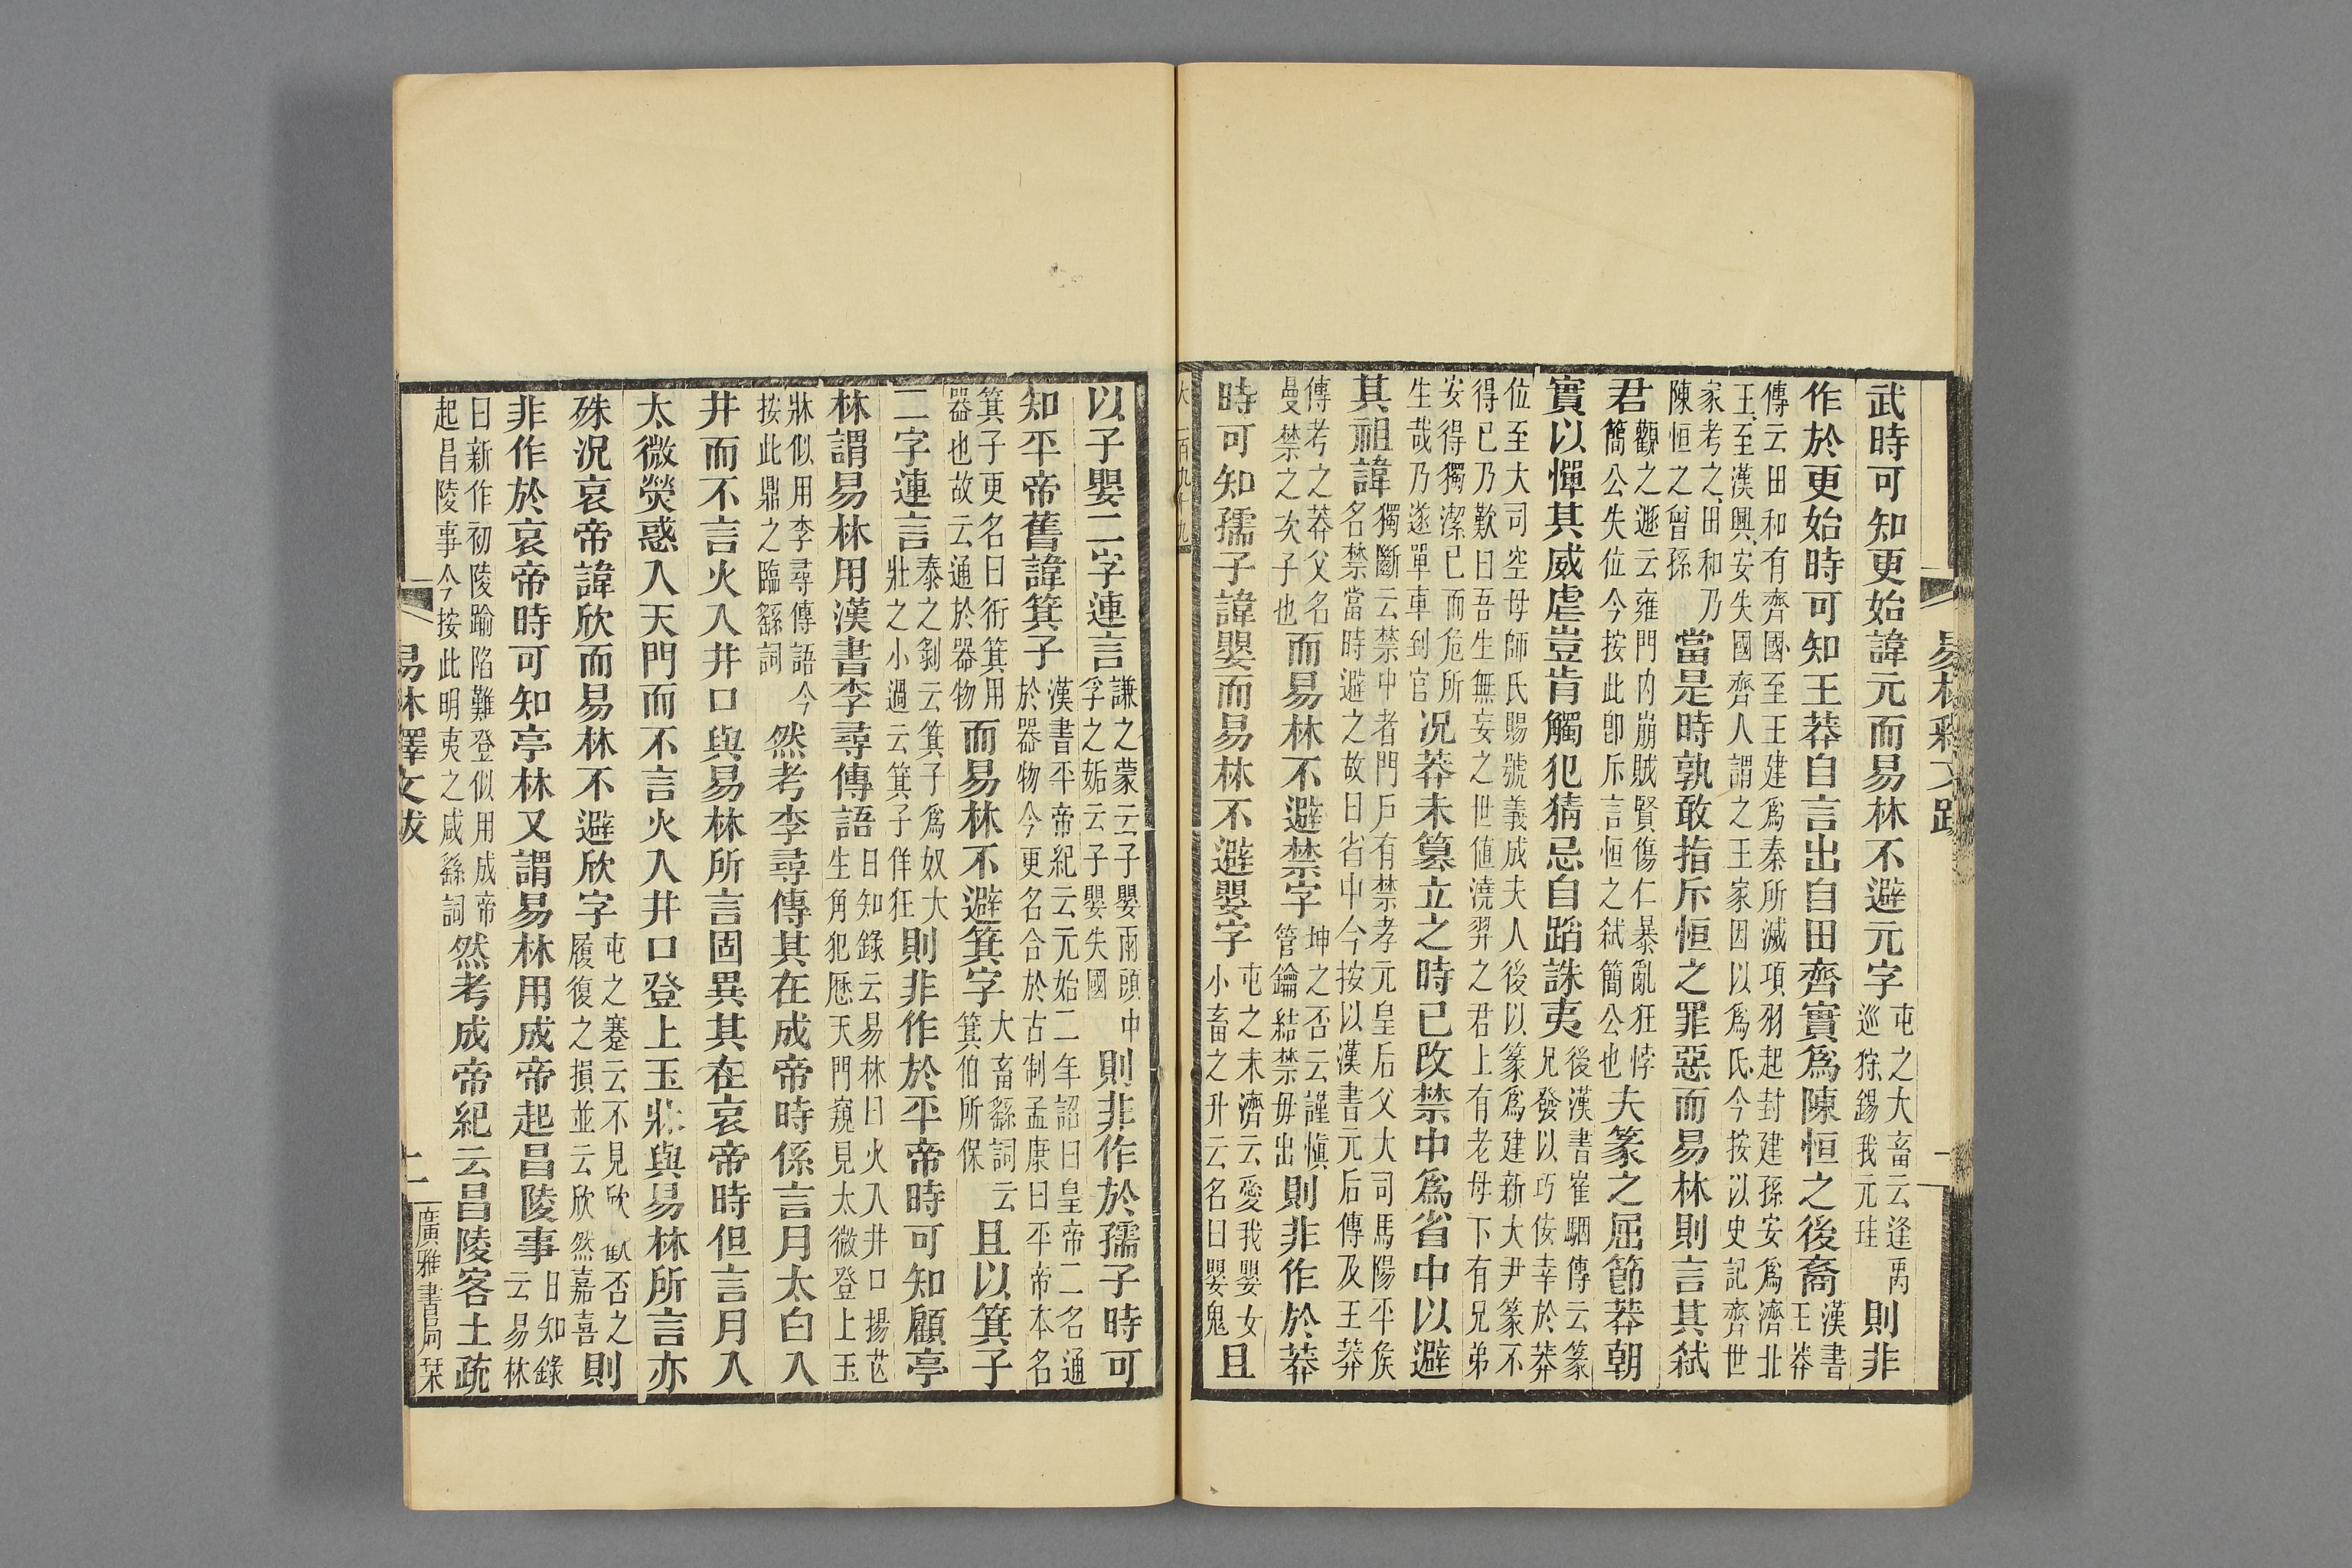 武時可知更始諱元而易林不避元字屯之大畜云逢禹巡狩錫我元珪則非
作於更始時可知王莽自言出自田齊實爲陳恒之後裔漢書王莽
傳云田和有齊國至王建爲秦所滅項羽起封建孫安爲濟北王至漢興安失國齊人謂之王家因以爲氏今按以史記齊世
家考之田和乃陳恒之曾孫當是時孰敢指斥恒之罪惡而易林則言其弑
君觀之遯云雍門內崩賊賢傷仁暴亂狂悖簡公失位今按此卽斥言恒之弑簡公也夫篆之屈節莽朝
實以憚其威虐豈肯觸犯猜忌自蹈誅夷後漢書崔駰傳云篆兄發以巧佞幸於莽
位至大司空母師氏賜號義成夫人後以篆爲建新大尹篆不得已乃歎曰吾生無妄之世値澆羿之君上有老母下有兄弟
安得獨潔已而危所生哉乃遂單車到官况莽未篡立之時已改禁中爲省中以避
其祖諱獨斷云禁中者門戶有禁孝元皇后父大司馬陽平矦名禁當時避之故曰省中今按以漢書元后傳及王莽
傳考之莽父名曼禁之次子也而易林不避禁字坤之否云謹愼管鑰結禁毋出則非作於莽
時可知孺子諱嬰而易林不避嬰字屯之未濟云愛我嬰女小畜之升云名曰嬰鬼且
以子嬰二字連言謙之蒙云子嬰兩頭中孚之姤云子嬰失國則非作於孺子時可
知平帝舊諱箕子漢書平帝紀云元始二年詔曰皇帝二名通於器物今更名合於古制孟康曰平帝本名
箕子更名曰衎箕用器也故云通於器物而易林不避箕字大畜繇詞云箕伯所保且以箕子
二字蓮言泰之剝云箕子爲奴大壯之小過云箕子佯狂則非作於平帝時可知顧亭
林謂易林用漢書李尋傳語日知錄云易林曰火入井口揚芒生角犯歷天門窺見太微登上玉
牀似用李尋傳語今按此鼎之臨繇詞然考李尋傳其在成帝時係言月太白入
井而不言火入井口與易林所言固異其在哀帝時但言月入
太微熒惑入天門而不言火入井口登上玉牀與易林所言亦
殊況哀帝諱欣而易林不避欣字屯之蹇云不見欣否之履復之損並云欣然嘉喜則
非作於哀帝時可知亭林又謂易林用成帝起昌陵事日知錄云易林
曰新作初陵踰陷難登似用成帝起昌陵事今按此明夷之咸繇詞然考成帝紀云昌陵客土疏
易林釋文跋
二
廣雅書局栞